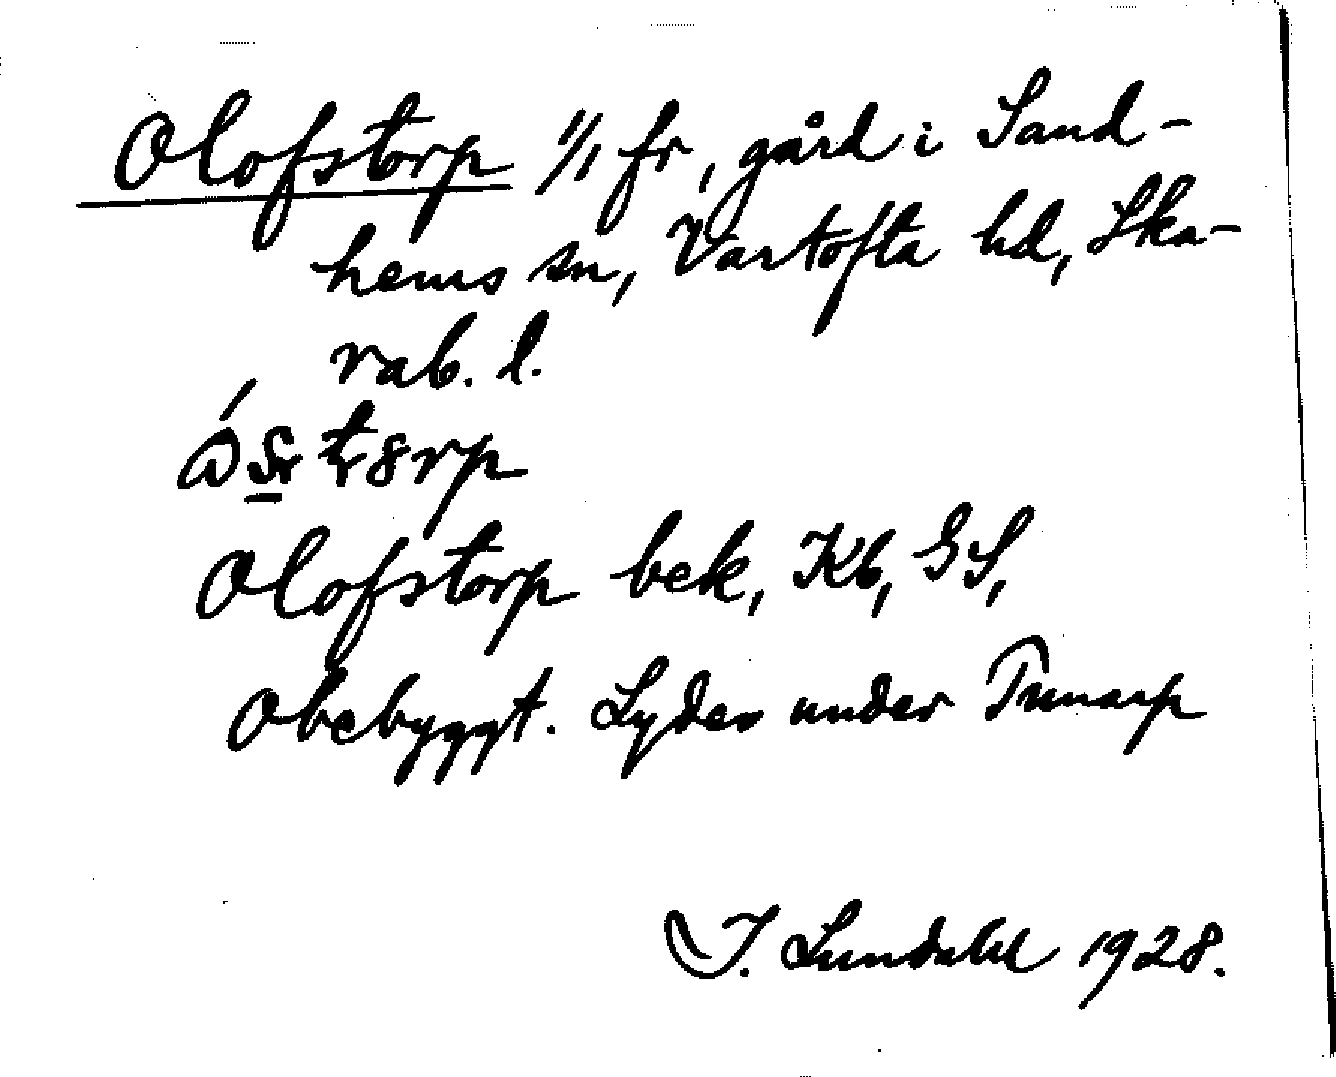 Olofstorp 1/1 fr, gård i Sand-
hems sn, Vartofta hd, Ska-
rab. l.
Olofstorp bek, Kb, GS,
Obebyggt. Lyder under Tunarp
I. Lundahl 1928.